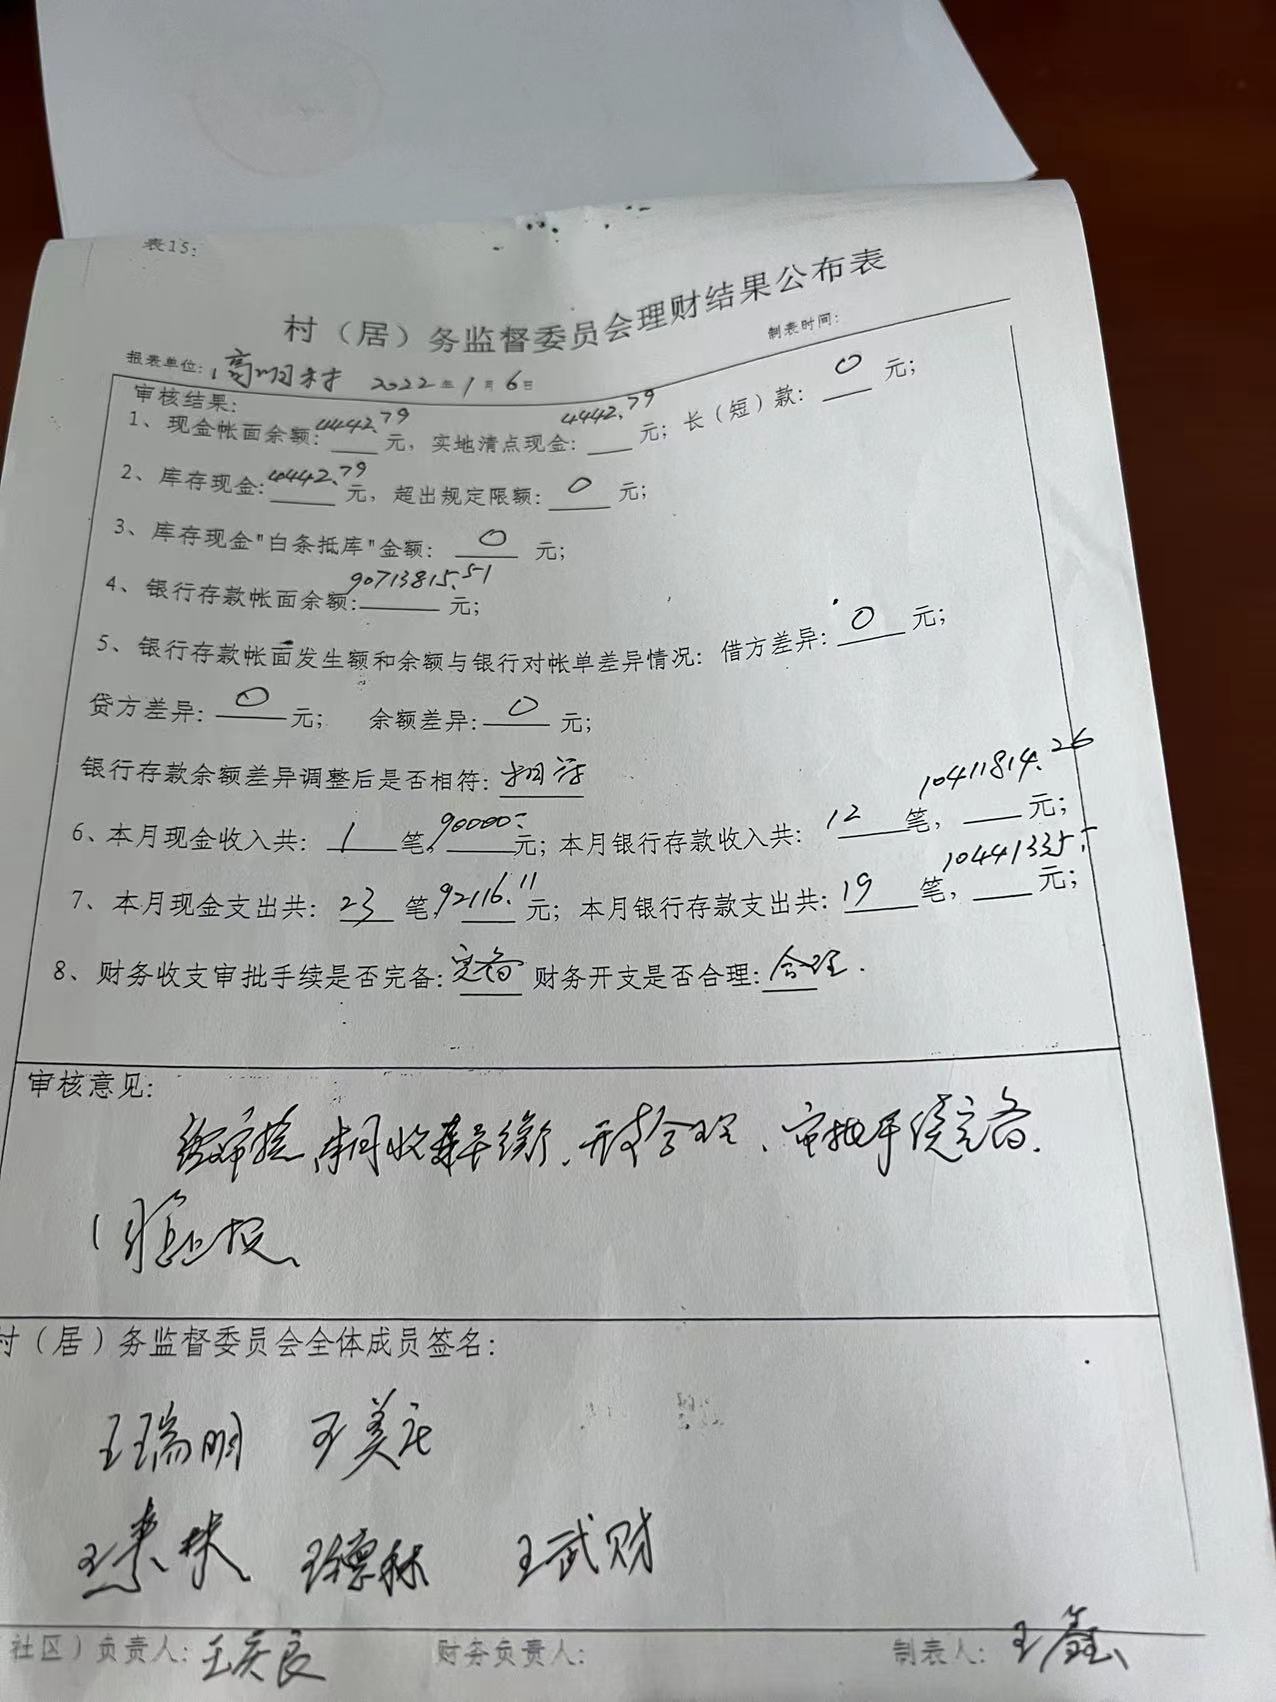 表15:
村（居）务监督委员会理财结果公布表
报表单位: 高明村 2022年1月6日 制表时间:
审核结果:
1、现金帐面余额: 4442.79 元, 实地清点现金: 4442.79 元; 长（短）款: 0 元;
2、库存现金: 4442.79 元, 超出规定限额: 0 元;
3、库存现金"白条抵库"金额: 0 元;
4、银行存款帐面余额: 90713815.51 元;
5、银行存款帐面发生额和余额与银行对帐单差异情况: 借方差异: 0 元;
贷方差异: 0 元; 余额差异: 0 元;
银行存款余额差异调整后是否相符: 相符
6、本月现金收入共: 1 笔, 90000.- 元; 本月银行存款收入共: 12 笔, 10411814.26 元;
7、本月现金支出共: 23 笔, 92116.11 元; 本月银行存款支出共: 19 笔, 10441335.- 元;
8、财务收支审批手续是否完备: 完备 财务开支是否合理: 合理.
审核意见:
经审核, 本月收支平衡, 开支合理、审批手续完备.
村（居）务监督委员会全体成员签名:
王瑞明 王美花
王素林 王德林 王武财
社区）负责人: 王庆良 财务负责人: 制表人: 王鑫